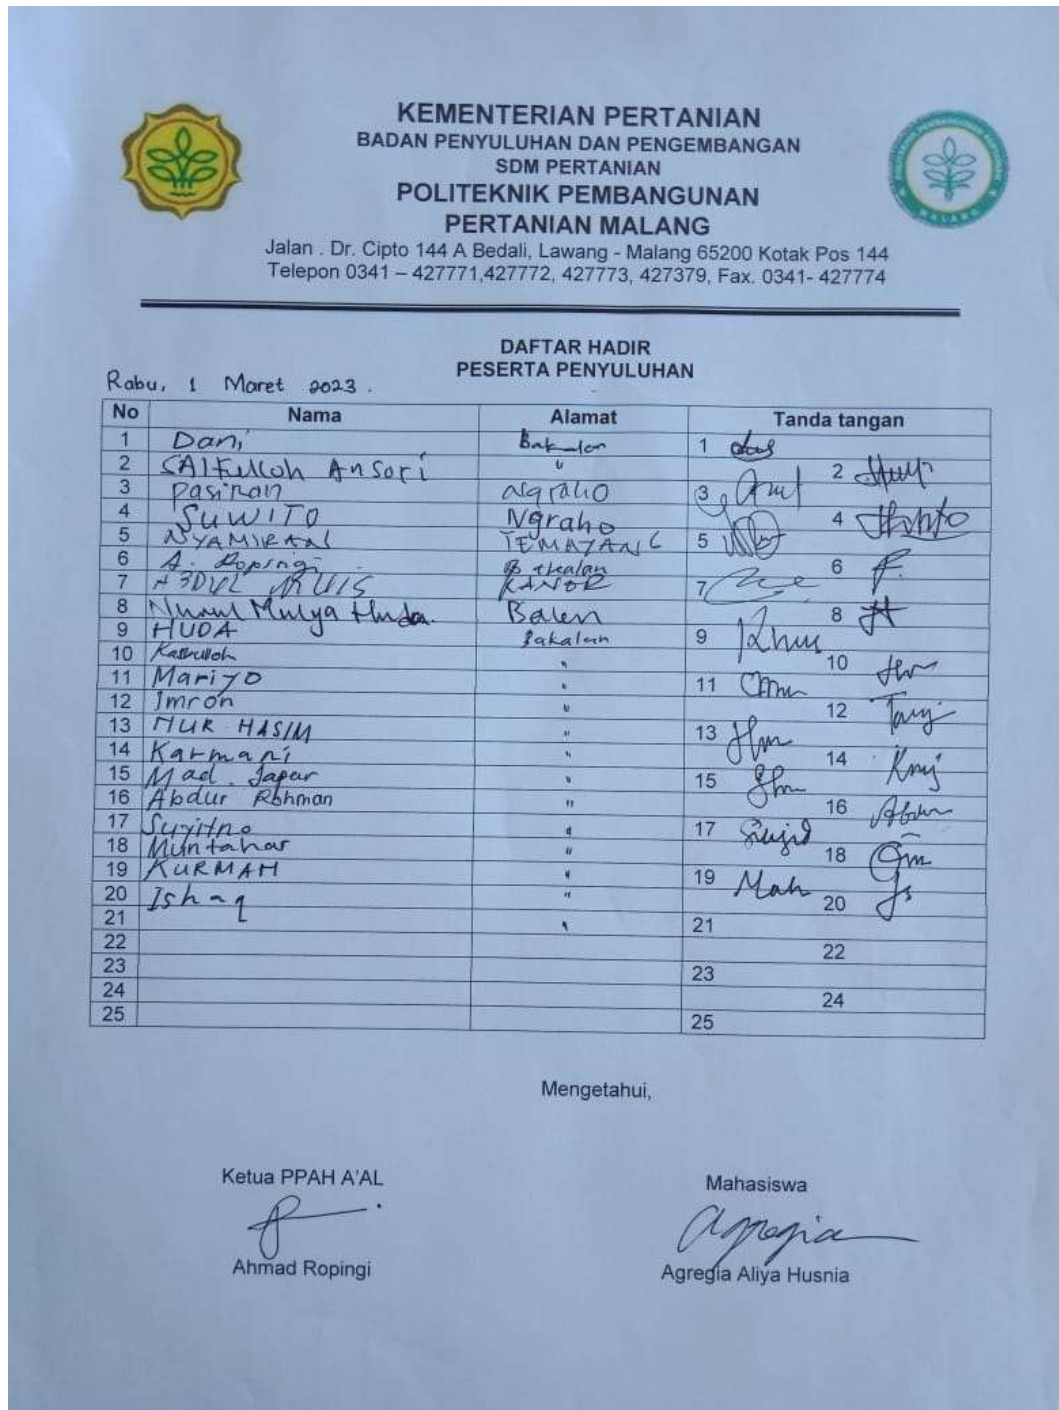 KEMENTERIAN PERTANIAN
BADAN PENYULUHAN DAN PENGEMBANGAN
SDM PERTANIAN
POLITEKNIK PEMBANGUNAN
PERTANIAN MALANG
Jalan . Dr. Cipto 144 A Bedali, Lawang - Malang 65200 Kotak Pos 144
Telepon 0341 – 427771,427772, 427773, 427379, Fax. 0341- 427774
DAFTAR HADIR
PESERTA PENYULUHAN
Rabu, 1 Maret 2023 .
No Nama Alamat Tanda tangan
1 Dani Bakalan 1
2 SAIFulloh Ansori " 2
3 Pasiran Ngraho 3
4 SUWITO Ngraho 4
5 NYAMIRAN TEMAYANG 5
6 A. Ropingi 6
7 ABDUL KANOR 7
8 Nurul Mulya Huda. Balen 8
9 HUDA Bakalan 9
10 " 10
11 Mariyo " 11
12 Imron " 12
13 NUR HASIM " 13
14 Karmani " 14
15 Mad. Japar " 15
16 Abdur Rohman " 16
17 Suyitno " 17
18 Muntahar " 18
19 KURMAH " 19 Mah
20 Ishaq " 20
21 " 21
22 22
23 23
24 24
25 25
Mengetahui,
Ketua PPAH A'AL Mahasiswa
Agregia
Ahmad Ropingi Agregia Aliya Husnia